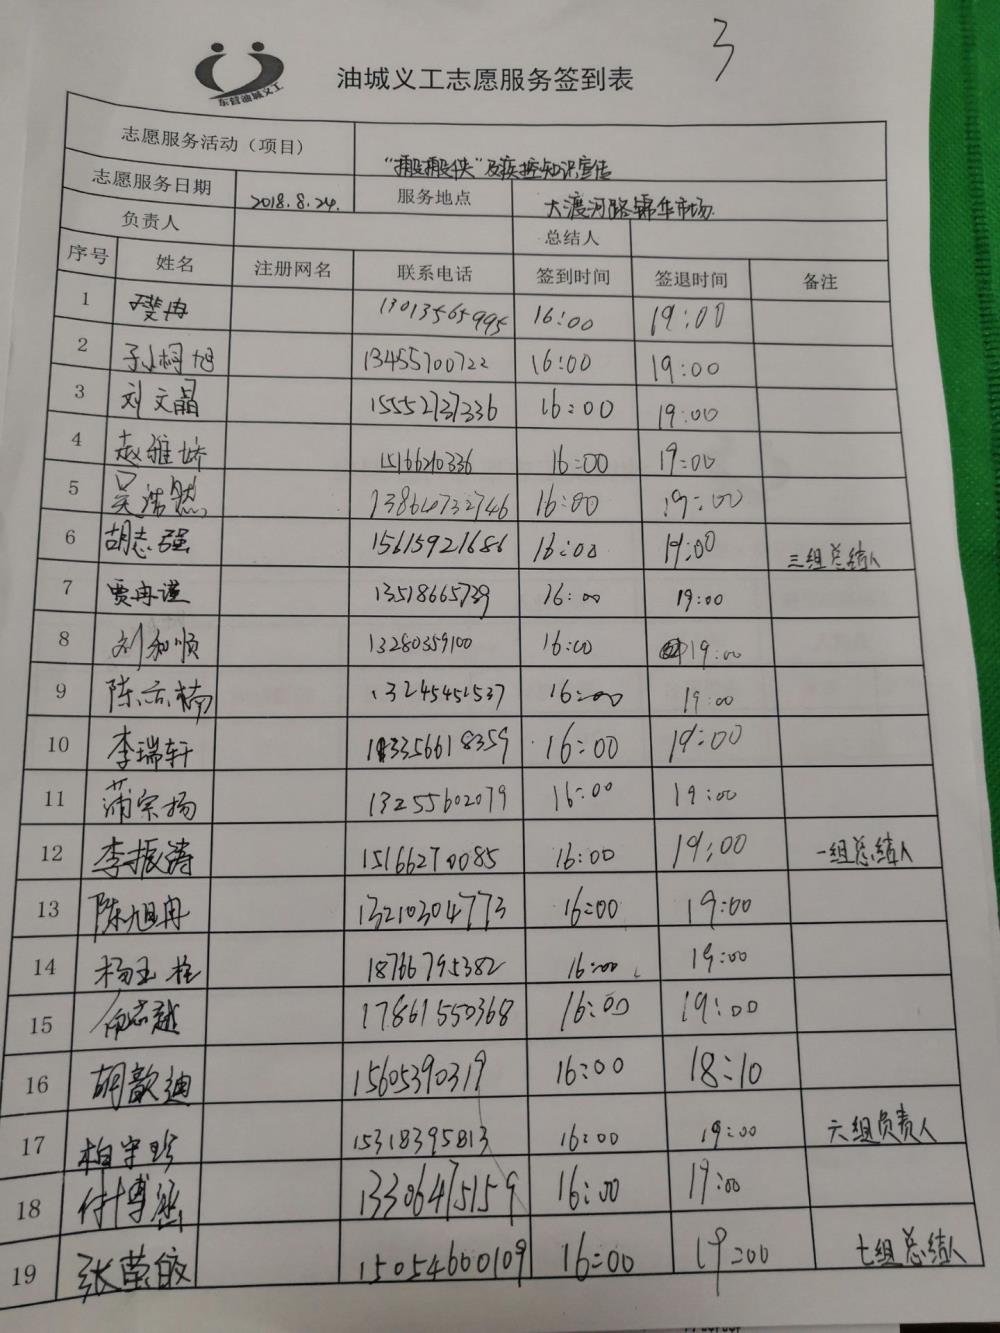 3
东营油城义工
油城义工志愿服务签到表
志愿服务活动（项目） “搬搬侠”及疾控知识宣传
志愿服务日期 2018.8.24. 服务地点 大渡河路锦华市场
负责人 总结人
序号 姓名 注册网名 联系电话 签到时间 签退时间 备注
1 冉 13013565995 16:00 19:00
2 13455700722 16:00 19:00
3 刘文晶 15552737336 16:00 19:00
4 赵雅娇 1516620336 16:00 19:00
5 吴浩然 13864732746 16:00 19:00
6 胡志强 15615921686 16:00 19:00 三组总结人
7 贾冉谨 13518665739 16:00 19:00
8 刘和顺 13280359100 16:00 19:00
9 陈亦楠 13245451537 16:00 19:00
10 李瑞轩 13356618359 16:00 19:00
11 蒲宗扬 13255602079 16:00 19:00
12 李振涛 15166270085 16:00 19:00 一组总结人
13 陈旭冉 13210304773 16:00 19:00
14 杨玉柱 18766795382 16:00 19:00
15 志越 17861550368 16:00 19:00
16 胡歆迪 15605390319 16:00 18:10
17 柏宇 15318395813 16:00 19:00 六组负责人
18 付博涵 13306475159 16:00 19:00
19 张莹 15054600109 16:00 19:00 七组总结人